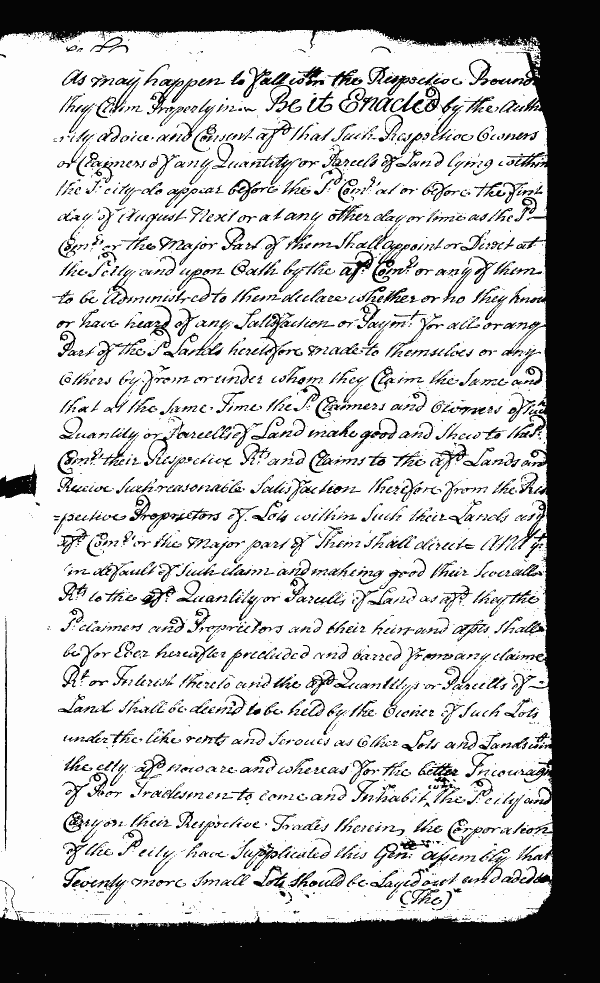 As may happen to fall wthin the Respective Bounds
they Claim Property in Be it Enacted by the Autho
rity advice and Consent afsd that Such Respective Owners
or Claimers of any Quantity or Parcels of Land lying within
the Sd city do appear before the Sd Comrs at or before the first
day of August Next or at any other day or time as the Sd
Comrs or the Major Part of them Shall appoint or Direct at
the Sd city and upon Oath by the afsd Comrs or any of them
to be Administred to them declare whether or no they know
or have heard of any Satisfaction or Paymt for all or any
Part of the Sd Lands heretofore made to themselves or any
Others by from or under whom they Claim the Same and
that at the Same Time the Sd Claimers and Owners of Such
Quantity or Parcells of Land make good and Shew to the Sd
Comrs their Respective Rts and Claims to the afsd Lands and
Receive Such reasonable Satisfaction therefore from the Res
=pective Proprietors of Lots within Such their Lands as ye
afsd Comrs or the Major part of Them Shall direct And yt
in default of Such claim and makeing good their Severall
Rts to the afsd Quantity or Parcells of Land as afsd they the
Sd claimers and Proprietors and their heirs and assis Shall
be for Ever hereafter precluded and barred from any claime
Rt or Interest thereto and the afsd Quantitys or Parcells of =
Land Shall be deem'd to be held by the Owner of Such Lots
under the like rents and Services as Other Lots and Lands in
the city afsd now are and whereas for the better Incouragmt
of Poor Tradesmen to come and Inhabit in the Sd city and
Carry on their Respective Trades therein, the Corporation
of the Sd city have Supplicated this Genl assembly that
Twenty more Small Lots should be Layed out and added
(The)